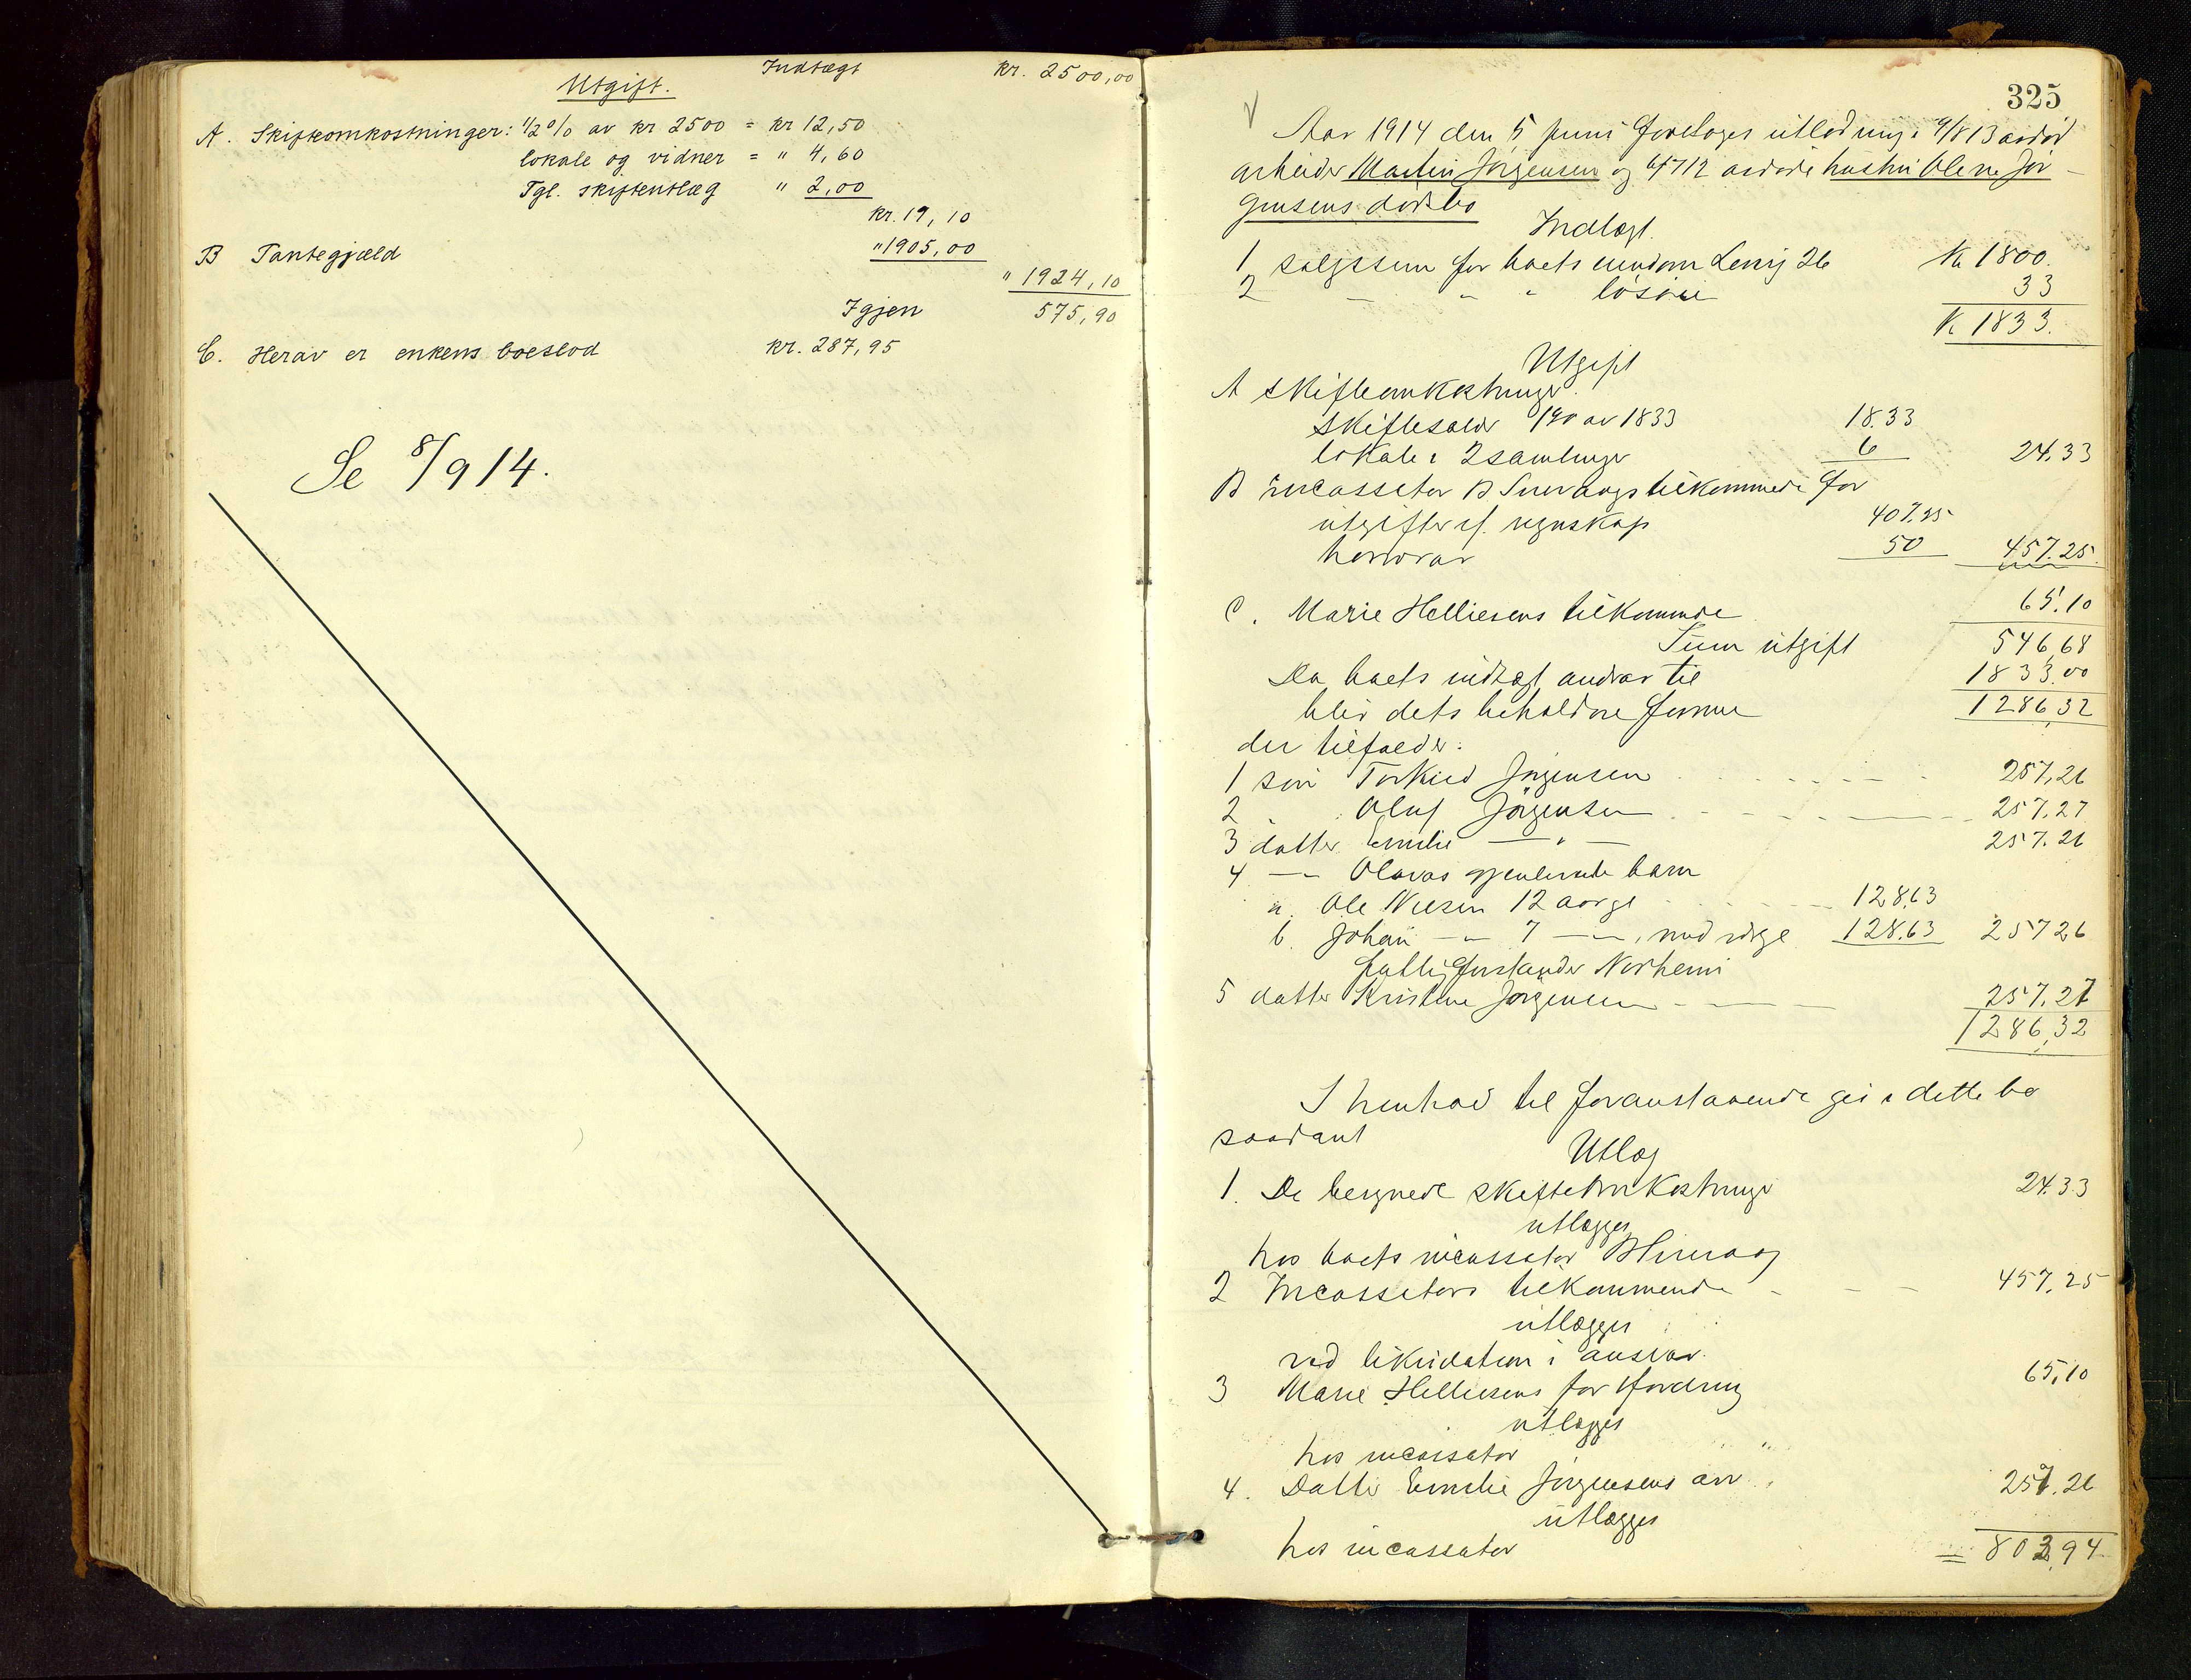 Indtægt kr. 2500,00
Utgift.
A. Skifteomkostninger: 1/2 % av kr 2500 = kr 12,50
lokale og vidner = " 4,60
Tgl. skifteutlæg " 2,00
kr. 19,10
B Pantegjæld "1905,00
" 1924,10
Igjen 575,90
C. Herav er enkens boeslod kr. 287,95
Se 8/9 14.
325
Aar 1914 den 5 juni foretoges utlodning i 9/8 13 avdöd
arbeider Martin Jörgensen og 6/7 12 avdöde hustru Olene Jör-
gensens dödsbo
Indtægt
1 salgssum for boets eiendom 26 Kr 1800.
2 - " " lösöre 33
K 1833.
Utgift
A Skifteomkostninger
Skiftesalær 1% av 1833 18.33
lokale i 2 samlinger 6 24.33
B incassator B tilkommende for
utgifter if. regnskap 407.25
honorar 50 457.25.
C. Marie Helliesens tilkommende 65.10
Sum utgift 546,68
Da boets indtægt andrar til 1833.00
blir dets beholdne formue 1286,32
der tilfalder:
1 sön Torkild Jörgensen 257,26
2 " Oluf Jörgensen 257,27
3 datter Emilie — " — 257.26
4 — " Olavas gjenlevende barn
a. Ole Nilsen 12 aar gl 128,63
b. Johan — " 7 — " —, med værge 128.63 257 26
fattigforstander Norheim
5 datter Kristine Jörgensen 257.27
1286,32
I henhold til foranstaaende gis i dette bo
saadant
Utlæg
1. De beregnede skifteomkostninger 24.33
utlægges
hos boets incassator
2 Incassators tilkommende 457,25
utlægges
ved likvidation i ansvar.
3 Marie Helliesens for fordring 65,10
utlægges
hos incassator "
4. Datter Emilie Jörgensens arv 257.26
utlægges
hos incassator = 803,94